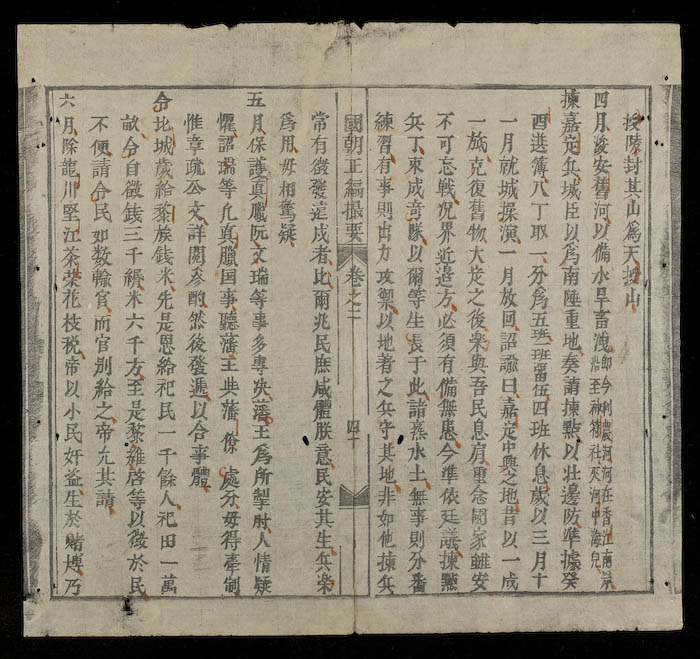 授陵封其山爲天授山
四月浚安舊河以備水旱畜洩即今利農河河在香江南岸
浩至神符社夾河中海兒
揀嘉定兵城臣以爲南陲重地奏請揀點以壯邊防準據癸
酉選簿八丁取一分爲五班班留伍四班休息歲以三月十
一月就城操演一月放回諭曰嘉定中興之地昔以一成
一旅克復舊物大定之後樂與吾民息肩重念國家雖安
不可忘戰況界近邊方必須有備無患今準依廷議揀點
兵丁束成奇隊以爾等生長于此諳熟水土無事則分番
練習有事則出力攻禦以地著之兵守其地非如他揀兵
國朝正編撮要 卷之二 四十
常有徵發遠戍者比爾兆民庶咸體朕意民安其生兵樂
爲用毋相驚疑
五月保護真臘阮文瑞等事多專决藩王爲所掣肘人情疑
懼詔瑞等凡真臘国事聽藩王與藩僚處分毋得牽制
惟章疏公文詳閱參酌然後發遞以合事體
令北城歲給黎族錢米先是恩給祀民一千餘人祀田一萬
畝令自徵錢三千緡米六千方至是黎維啓等以徵於民
不便請令民如数輸官而官别給之帝允其請
六月除龍川堅江茶榮花枝税帝以小民奸盗生於賭博乃